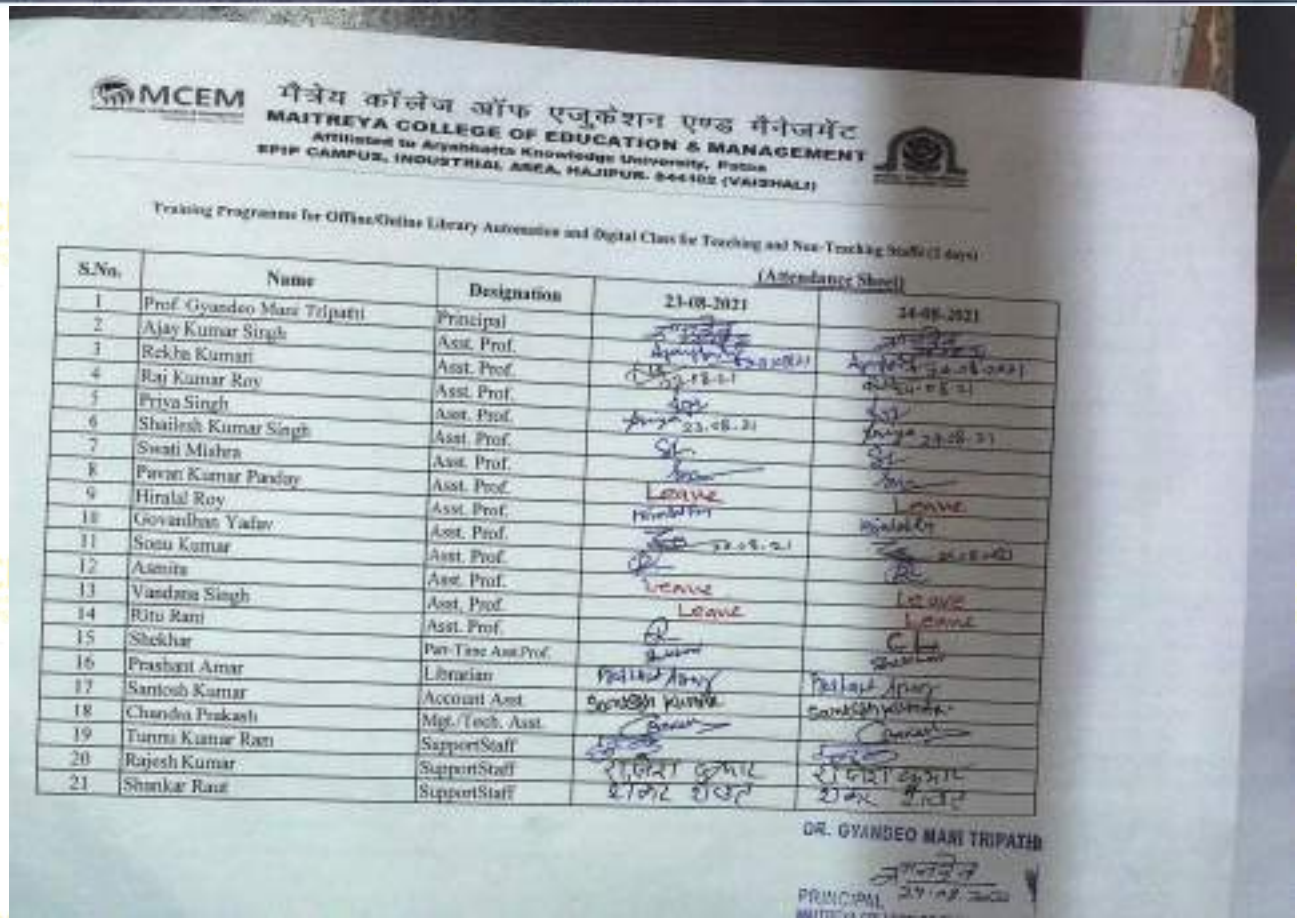 MCEM
मैत्रेय कॉलेज ऑफ एजुकेशन एण्ड मैनेजमेंट
MAITREYA COLLEGE OF EDUCATION & MANAGEMENT
Affiliated to Aryabhatta Knowledge University, Patna
EPIP CAMPUS, INDUSTRIAL AREA, HAJIPUR. 844102 (VAISHALI)
Training Programme for Offline/Online Library Automation and Digital Class for Teaching and Non-Teaching Staffs (2 days)
(Attendance Sheet)
S.No. Name Designation 23-08-2021 24-08-2021
1 Prof. Gyandeo Mani Tripathi Principal
2 Ajay Kumar Singh Asst. Prof.
3 Rekha Kumari Asst. Prof. 24.08.21
4 Raj Kumar Roy Asst. Prof.
5 Priya Singh Asst. Prof. Priya 23.08.21 Priya 24.08.21
6 Shailesh Kumar Singh Asst. Prof.
7 Swati Mishra Asst. Prof.
8 Pavan Kumar Panday Asst. Prof. Leave Leave
9 Hiralal Roy Asst. Prof.
10 Govardhan Yadav Asst. Prof.
11 Sonu Kumar Asst. Prof.
12 Asmita Asst. Prof. Leave Leave
13 Vandana Singh Asst. Prof. Leave Leave
14 Ritu Rani Asst. Prof.
15 Shekhar Part-Time Asst.Prof.
16 Prashant Amar Librarian
17 Santosh Kumar Account Asst. Santosh Kumar Santosh Kumar
18 Chandra Prakash Mgt./Tech. Asst.
19 Tunnu Kumar Ram SupportStaff
20 Rajesh Kumar SupportStaff राजेश कुमार राजेश कुमार
21 Shankar Raut SupportStaff शंकर राउत शंकर राउत
DR. GYANDEO MANI TRIPATHI
PRINCIPAL